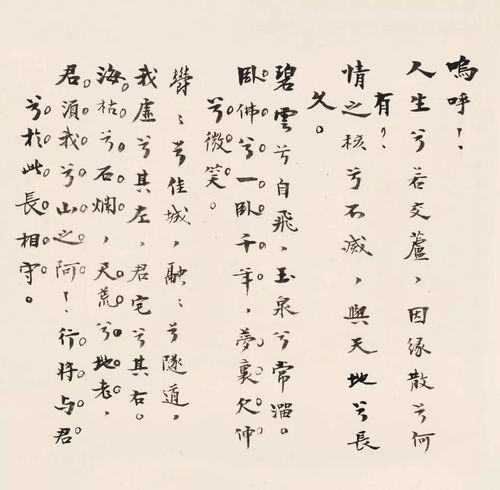 嗚呼！
人生兮若交蘆，因緣散兮何
有？
情之核兮不滅，與天地兮長
久。
碧雲兮自飛，玉泉兮常溜。
卧佛兮一卧千年，夢裏欠伸
兮微笑。
鬱：兮佳城，融：兮隧道，
我虛兮其左，君宅兮其右。
海枯兮石爛，天荒兮地老，
君須我兮山之阿！行將与君
兮於此長相守。